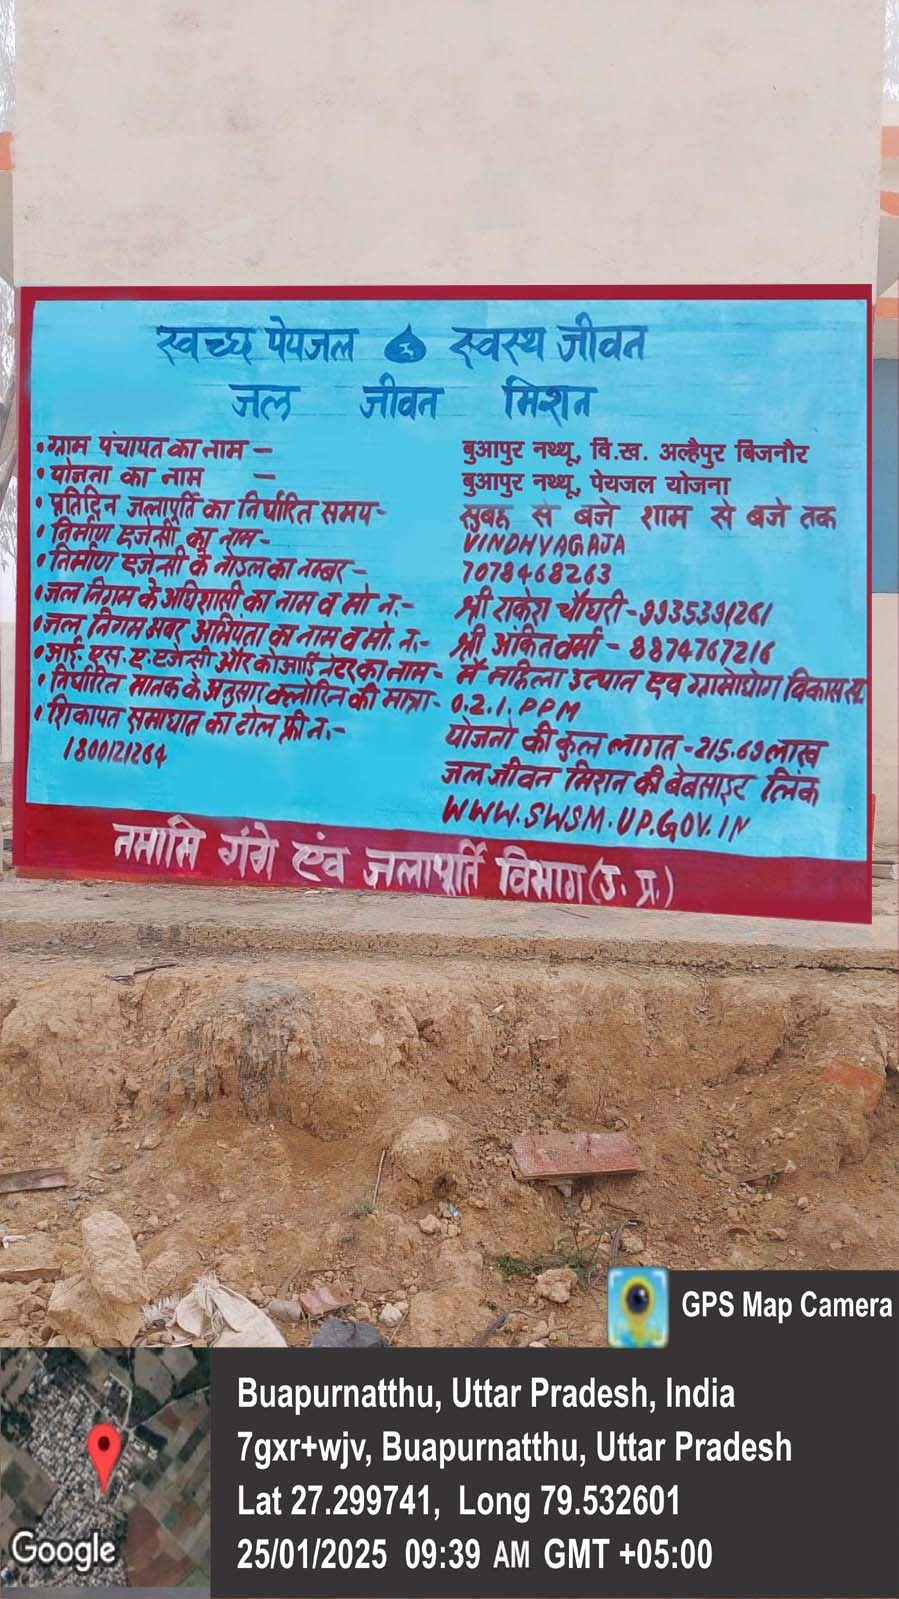 स्वच्छ पेयजल स्वस्थ जीवन
जल जीवन मिशन
• ग्राम पंचायत का नाम – बुआपुर नथ्थू, वि.ख. अल्हैपुर बिजनौर
• योजना का नाम – बुआपुर नथ्थू, पेयजल योजना
• प्रतिदिन जलापूर्ति का निर्धारित समय- सुबह से बजे शाम से बजे तक
• निर्माण एजेन्सी का नाम- VINDHYAGAJA
• निर्माण एजेन्सी के नोडल का नम्बर- 7078468263
• जल निगम के अधिशासी का नाम व मो न.- श्री राकेश चौधरी-9935391261
• जल निगम अवर अभियंता का नाम व मो. न.- श्री अंकित वर्मा - 8874767216
• आई. एस. ए. एजेन्सी और कोआर्डिनेटर का नाम- मै महिला उत्थान एव ग्रामोद्योग विकास स.
• निर्धारित मानक के अनुसार क्लोरिन की मात्रा- 0.2.1. PPM
• शिकायत समाधान का टोल फ्री न.- योजना की कुल लागत -215.69 लाख
1800121264 जल जीवन मिशन की बेबसाइट लिंक
WWW.SWSM.UP.GOV.IN
नमामि गंगे एंव जलापूर्ति विभाग (उ. प्र.)
GPS Map Camera
Buapurnatthu, Uttar Pradesh, India
7gxr+wjv, Buapurnatthu, Uttar Pradesh
Lat 27.299741, Long 79.532601
25/01/2025 09:39 AM GMT +05:00
Google